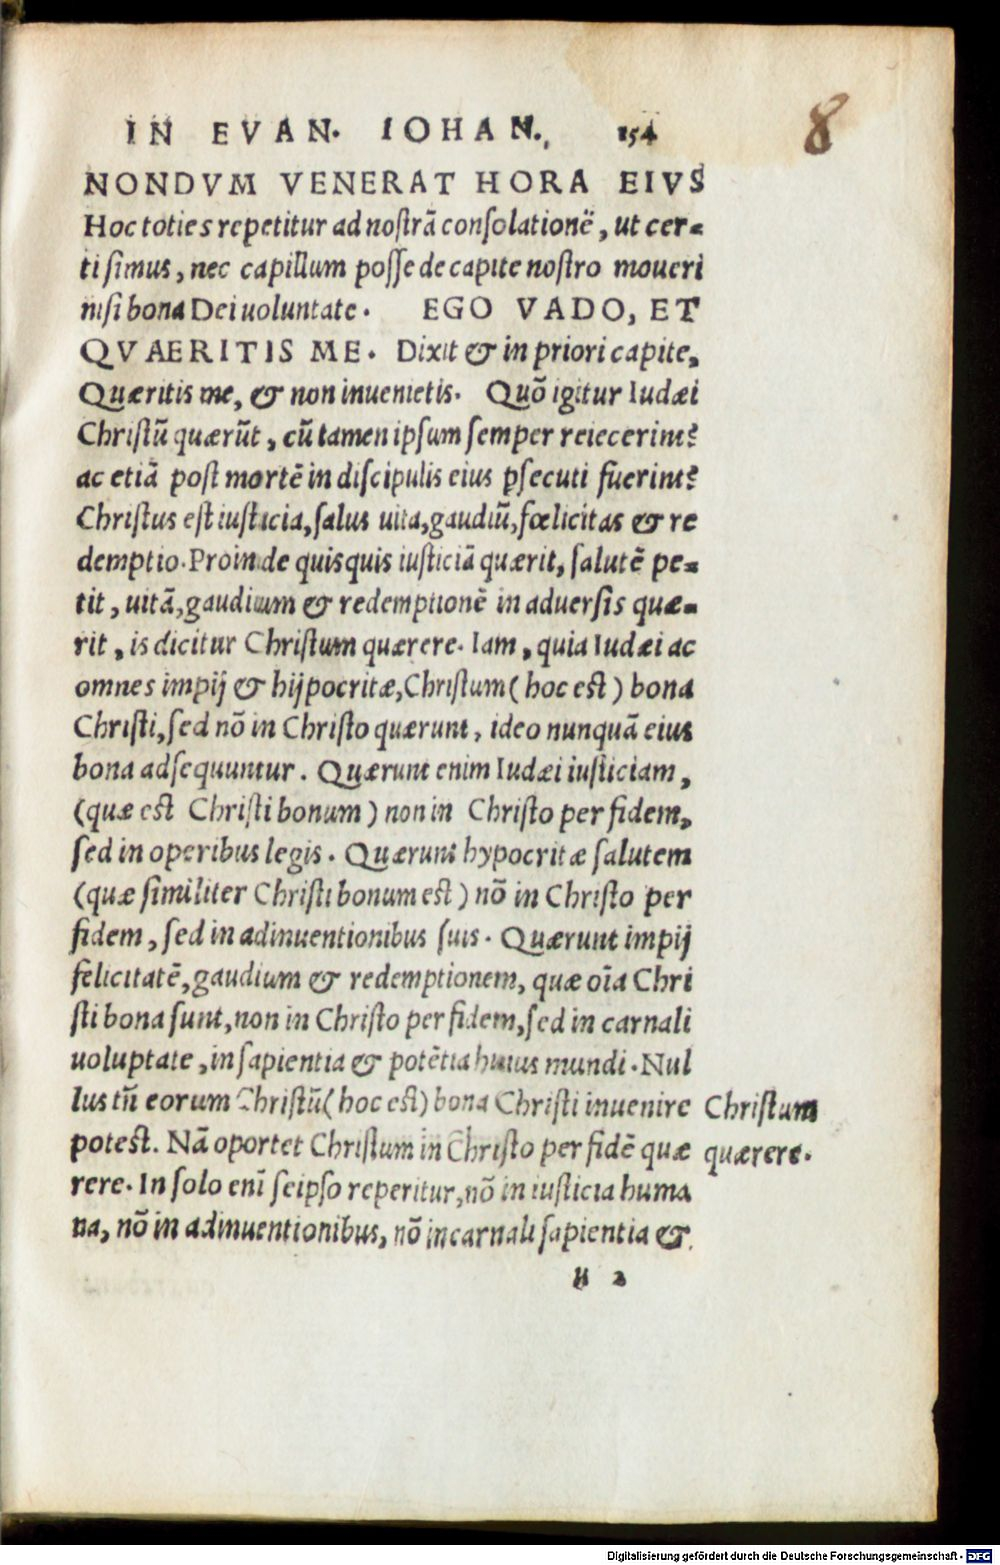 IN EVAN. IOHAN. 154
8
NONDVM VENERAT HORA EIVS
Hoc toties repetitur ad nostrã consolationẽ, ut cer-
ti simus, nec capillum posse de capite nostro moueri
nisi bona Dei uoluntate. EGO VADO, ET
QVAERITIS ME. Dixit & in priori capite,
Quæritis me, & non inuenietis. Quõ igitur Iudæi
Christũ quærũt, cũ tamen ipsum semper reiecerint?
ac etiã post mortẽ in discipulis eius ꝑsecuti fuerint?
Christus est iusticia, salus uita, gaudiũ, fœlicitas & re
demptio. Proinde quisquis iusticiã quærit, salutẽ pe-
tit, uitã, gaudium & redemptionẽ in aduersis quæ-
rit, is dicitur Christum quærere. Iam, quia Iudæi ac
omnes impij & hijpocritæ, Christum (hoc est) bona
Christi, sed nõ in Christo quærunt, ideo nunquã eius
bona adsequuntur. Quærunt enim Iudæi iusticiam,
(quæ est Christi bonum) non in Christo per fidem,
sed in operibus legis. Quærunt hypocritæ salutem
(quæ similiter Christi bonum est) nõ in Christo per
fidem, sed in adinuentionibus suis. Quærunt impij
felicitatẽ, gaudium & redemptionem, quæ oĩa Chri
sti bona sunt, non in Christo per fidem, sed in carnali
uoluptate, in sapientia & potẽtia huius mundi. Nul
lus tñ eorum Christũ (hoc est) bona Christi inuenire
potest. Nã oportet Christum in Christo per fidẽ quæ
rere. In solo enĩ seipso reperitur, nõ in iusticia huma
na, nõ in adinuentionibus, nõ in carnali sapientia &
Christum
quærere.
H 2
Digitalisierung gefördert durch die Deutsche Forschungsgemeinschaft - DFG